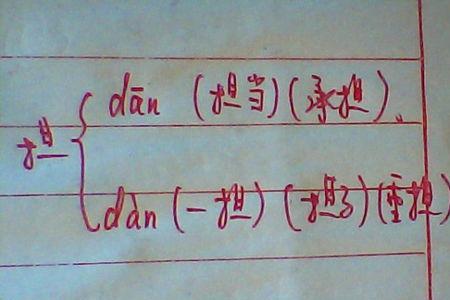 担
dān (担当) (承担)、
dàn (一担) (担子) (重担)